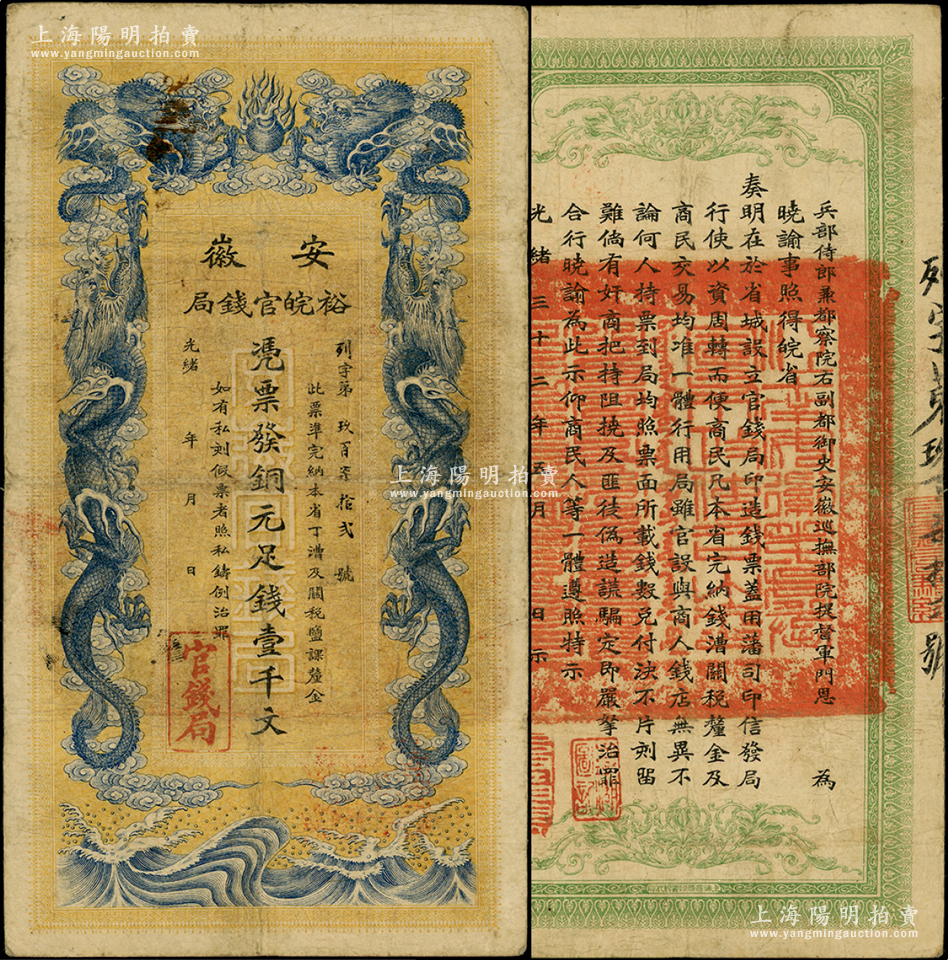 上海陽明拍賣
www.yangmingauction.com
安徽
裕皖官錢局
列字第玖百柒拾貳號
此票準完納本省丁漕及關稅鹽課釐金
憑票發銅元足錢壹千文
如有私刻假票者照私鑄例治罪
光緒 年 月 日
官錢局
兵部侍郎兼都察院右副都御史安徽巡撫部院提督軍門恩 為
曉諭事照得皖省
奏明在於省城設立官錢局印造錢票蓋用藩司印信發局
行使以資周轉而便商民凡本省完納錢漕關稅釐金及
商民交易均准一體行用局雖官設與商人錢店無異不
論何人持票到局均照票面所載錢數兌付決不片刻留
難倘有奸商把持阻撓及匪徒偽造謊騙定即嚴拏治罪
合行曉諭為此示仰商民人等一體遵照特示
光緒三十二年五月 日示
上海陽明拍賣
www.yangmingauction.com
上海陽明拍賣
www.yangmingauction.com